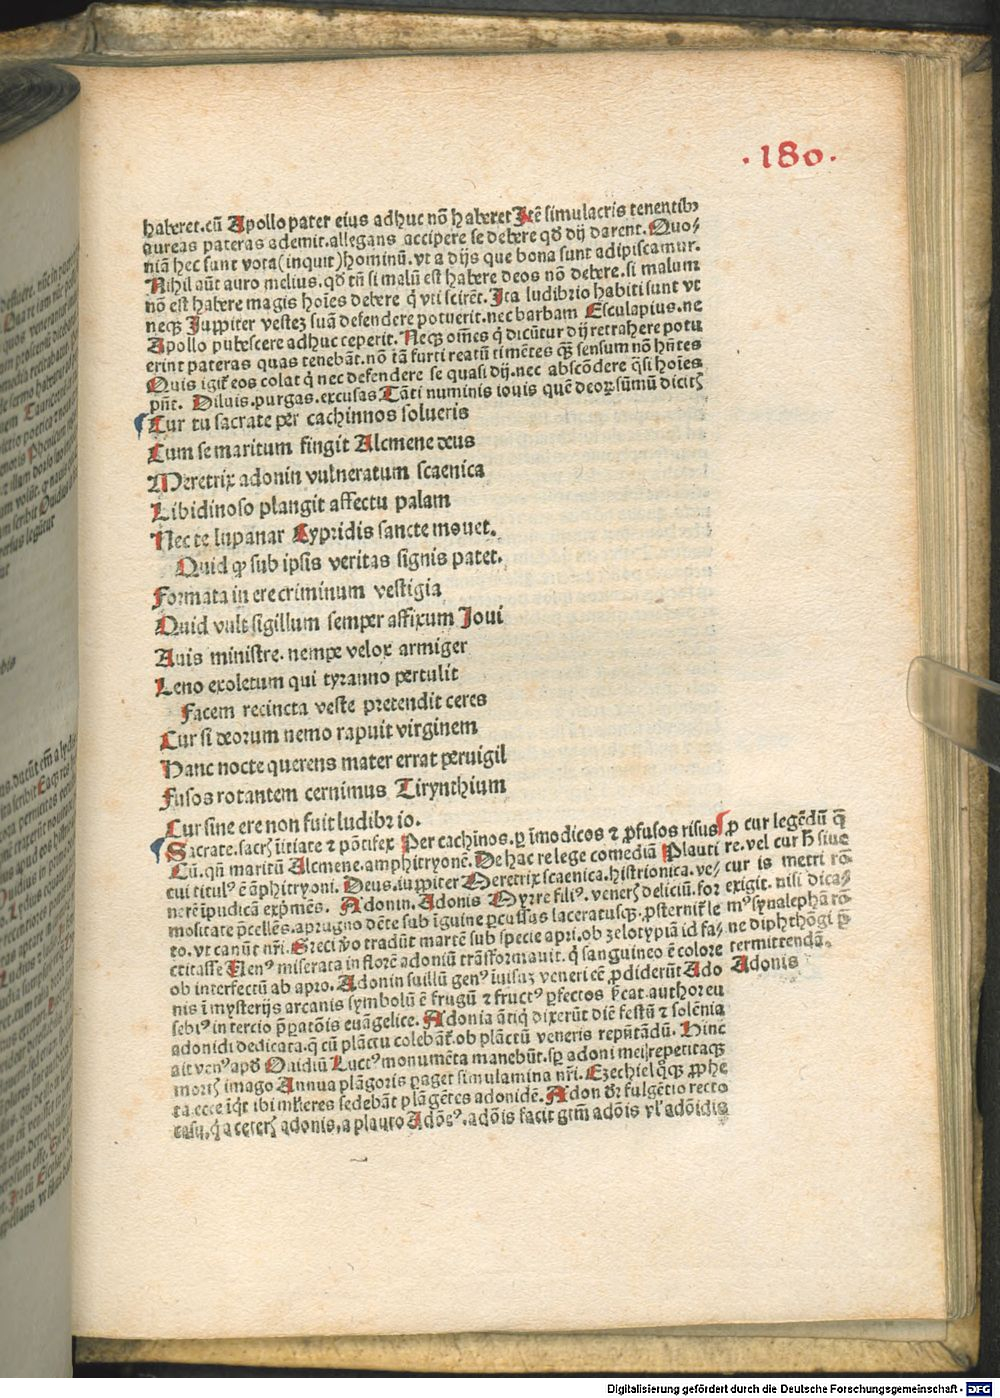 .180.
haberet.cū Apollo pater eius adhuc nō haberet Itē simulacris tenentibꝫ
aureas pateras ademit.allegans accipere se debere qđ dij darent.Quo-
niā hec sunt vota(inquit)hominū.vt a dijs que bona sunt adipiscamur.
Nihil aūt auro melius.qđ tñ si malū est habere deos nō debere.si malum
nō est habere magis hoīes debere q̇ vti scirēt.Ita ludibrio habiti sunt vt
neqꝫ Juppiter vestez suā defendere potuerit.nec barbam Esculapius.ne
Apollo pubescere adhuc ceperit.Neqꝫ om̄es q̇ dicūtur dij retrahere potu
erint pateras quas tenebāt.nō tā furti reatū timētes qꝫ sensum nō hñtes
Quis igiť eos colat q̇ nec defendere se quasi dij.nec abscōdere q̄si hoīes
pñt. Diluis.purgas.excusas Tāti numinis iouis quē deoꝝ sūmū dicitꝭ
Cur tu sacrate per cachinnos solueris
Cum se maritum fingit Alcmene deus
Meretrix adonin vulneratum scaenica
Libidinoso plangit affectu palam
Nec te lupanar Cypridis sancte mouet.
Quid ꝙ sub ipsis veritas signis patet.
Formata in ere criminum vestigia
Quid vult sigillum semper affixum Joui
Auis ministre.nempe velox armiger
Leno exoletum qui tyranno pertulit
Facem recincta veste pretendit ceres
Cur si deorum nemo rapuit virginem
Hanc nocte querens mater errat peruigil
Fusos rotantem cernimus Tirynthium
Cur sine ere non fuit ludibrio.
Sacrate.sacrꝭ īitiate ⁊ pōtifex Per cachinos.ꝑ īmodicos ⁊ ꝓfusos risus
Cū.qñ maritū Alcmene.amphitryonē. De hac re lege comediā Plauti
cui titulꝰ ē āphitryoni. Deus.iuppiter Meretrix scaenica.histrionica.ve-
nerē īpudicā exp̄mēs. Adonin. Adonis Myrre filiꝰ.venerꝭ deliciū.for
mositate p̄cellēs.aprugno dēte sub īguine ꝑcussus laceratusqꝫ.ꝓsterniť le
to.vt canūt nr̄i.Greci v̄o tradūt martē sub specie apri.ob zelotypiā id fa-
ctitasse Uenꝰ miserata in florē adoniū trāsformauit.q̇ sanguineo ē colore
ob interfectū ab apro. Adonin suillū genꝰ īuisuꝫ veneri eē ꝓdiderūt Ado
nis ī mysterijs arcanis symbolū ē frugū ⁊ fructꝰ ꝑfectos p̄cat.author eu
sebiꝰ in tercio p̄ꝑatōis euāgelice. Adonia ātiq̇ dixerūt diē festū ⁊ solēnia
adonidi dedicata.q̇ cū plāctu colebāť.ob plāctū veneris reputādū. Hinc
ait venꝰ apđ Ouidiū Luctꝰ monumēta manebūt.sꝑ adoni mei repetitaqꝫ
mortꝭ imago Annua plāgoris ꝑaget simulamina nr̄i. Ezechiel qꝫ ꝓphe
ta.ecce īqt ibi ml̄ieres sedebāt plāgētes adonidē. Adon đr fulgētio recto
casu.q̇ a ceterꝭ adonis.a plauto Adōeꝰ.adōis facit gtm̄ adōis vl̓ adōidis
ꝓ cur legēdū q̄
re.vel cur hꝭ siue
cur is metri rō
exigit. nisi dica-
mꝰ synalephā rō-
ne diphthōgi p̄
termittendā.
Adonis
Digitalisierung gefördert durch die Deutsche Forschungsgemeinschaft - DFG